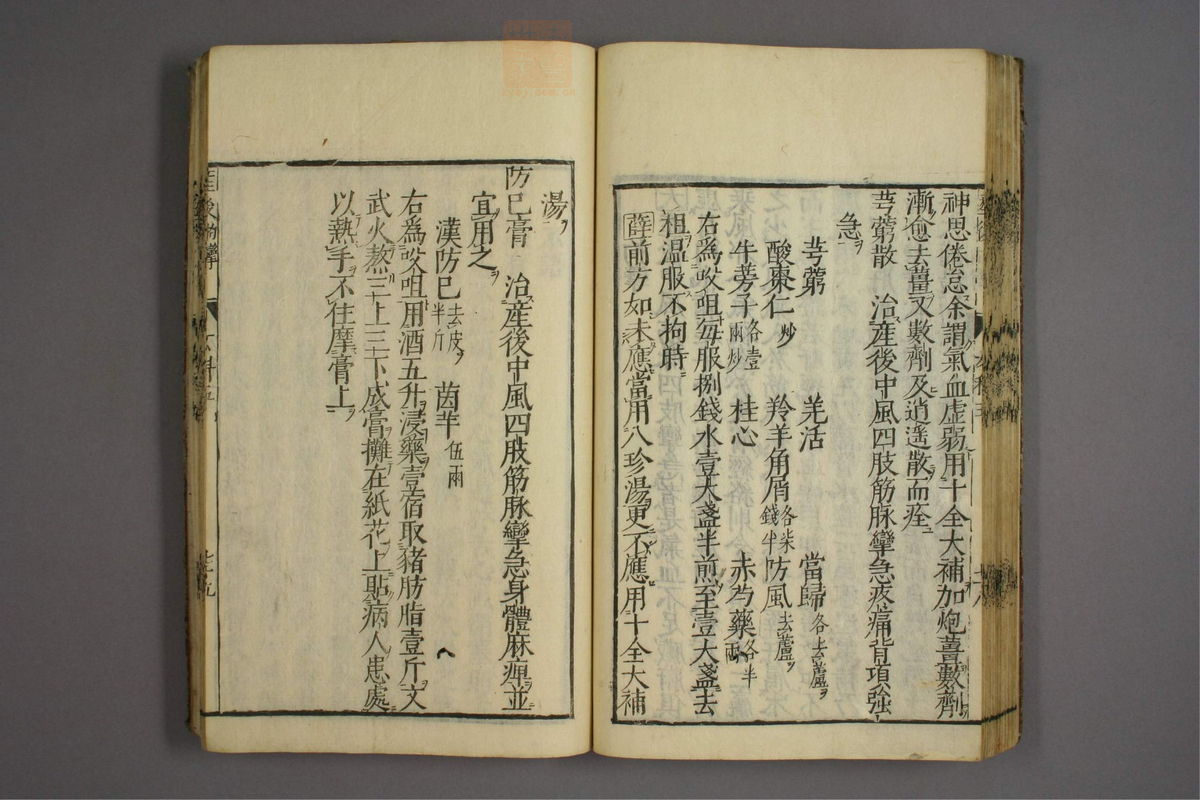 神思倦怠余謂氣血虛弱用十全大補加炮薑數劑
漸愈去薑又數劑及逍遙散而痊
芎藭散 治產後中風四肢筋脉攣急疼痛背項強
急
芎藭 羌活 當歸各去蘆
酸棗仁炒 羚羊角屑各柒錢半 防風去蘆
牛蒡子各壹兩炒 桂心 赤芍藥各半兩
右為㕮咀每服捌錢水壹大盞半煎至壹大盞去
粗溫服不拘時
薛前方如未應當用八珍湯更不應用十全大補
湯
防巳膏 治產後中風四肢筋脉攣急身體麻痺並
宜用之
漢防巳去皮半斤 茵芋伍兩
右為㕮咀用酒五升浸藥壹宿取豬肪脂壹斤文
武火熬三上三下成膏攤在紙花上貼病人患處
以熱手不住摩膏上